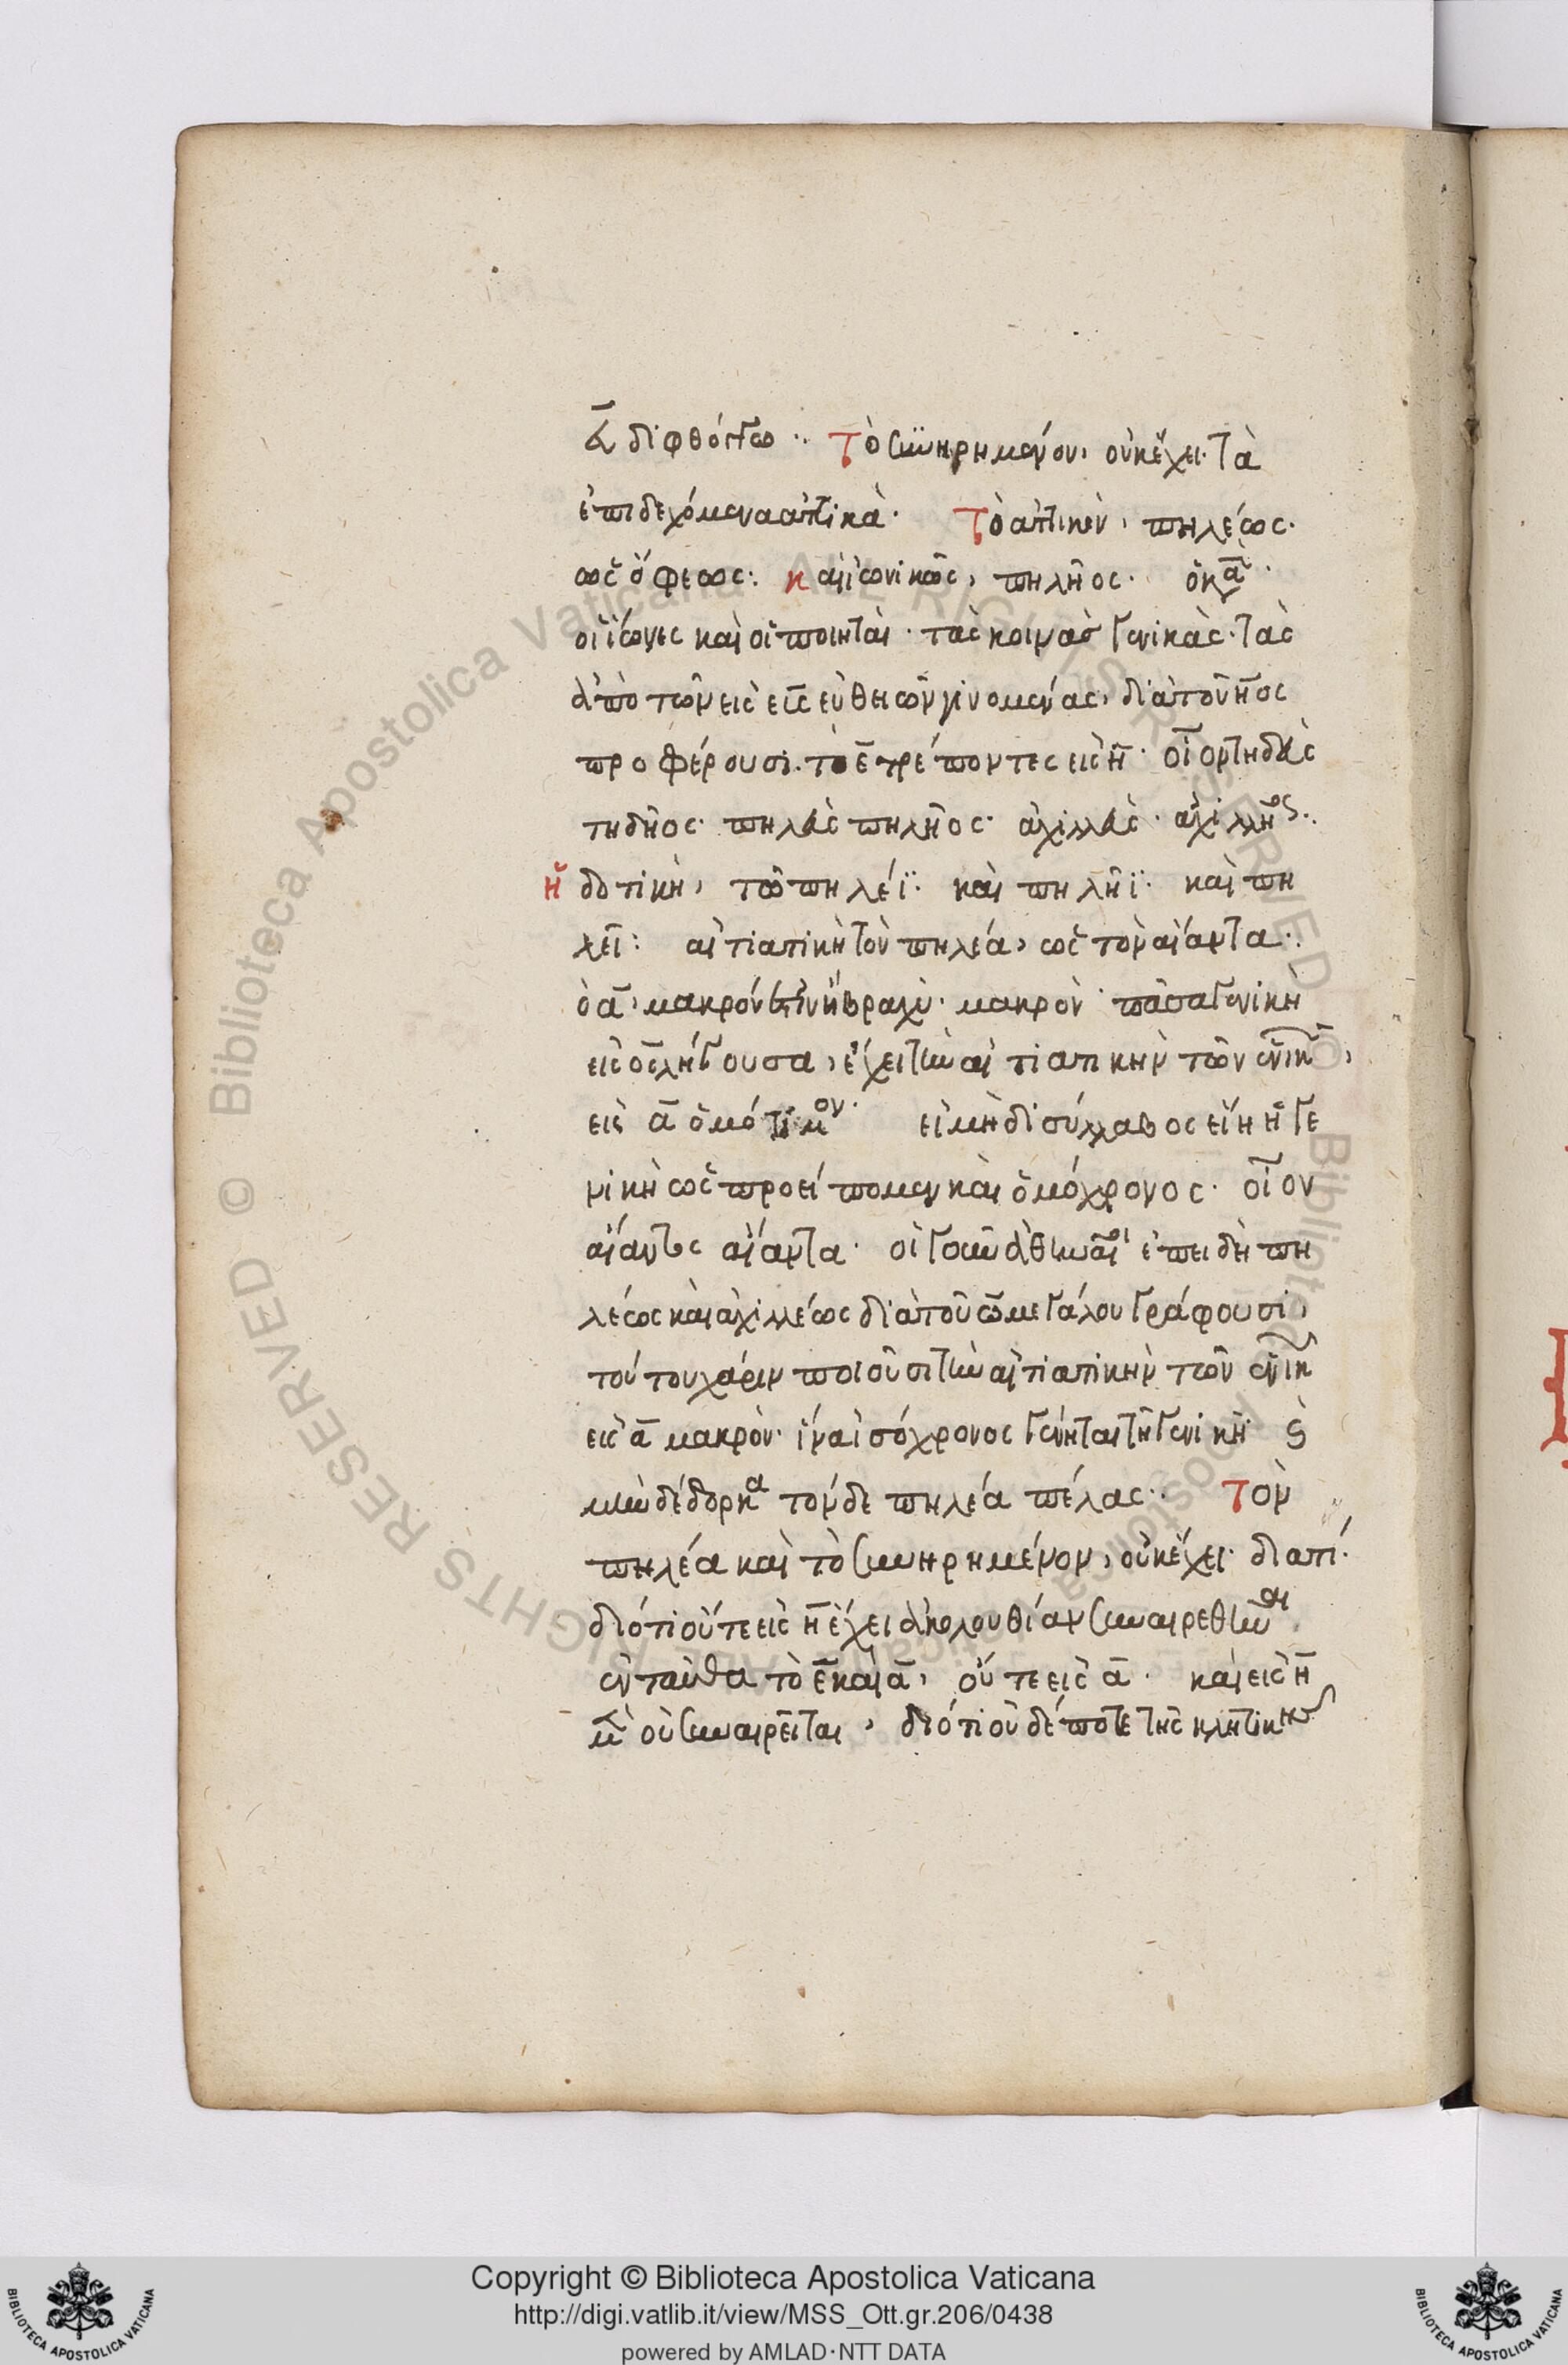 διφθόγγω·· Τὸ συνηρημένον, οὐκ ἔχει· τὰ
ἐπιδεχόμενα ἀττικά· Τὸ ἀττικὸν, πηλέως·
ὡς ὄφεως: καὶ ἰωνικῶς, πηλῆος·
οἱ ἴωνες καὶ οἱ ποιηταὶ· τὰς κοινὰς γενικὰς· τὰς
ἀπὸ τῶν εἰς ευς εὐθειῶν γινομένας, διὰ τοῦ ῆος
προφέρουσι· τὸ ε̄ τρέποντες εἰς η̄· οἷον τηδεὺς
τηδῆος· πηλεὺς πηλῆος· ἀχιλλεὺς· ἀχιλλῆος··
ἡ δοτικὴ, τῶ πηλέϊ· καὶ πηλῆϊ· καὶ πη
λεῖ: αἰτιατικὴ τὸν πηλέα, ὡς τὸν αἴαντα··
μακρὸν ἢ βραχύ· μακρόν· πᾶσα γενικὴ
εἰς ος λήγουσα, ἔχει τὴν αἰτιατικὴν τῶν ἑνικῶν,
εἰς ᾱ ὁμότιμον· εἰ μὴ δισύλλαβος εἴη ἡ γε
νικὴ ὡς προείπομεν καὶ ὁμόχρονος· οἷον
αἴαντος αἴαντα· οἱ γοῦν ἀθηναῖοι ἐπειδὴ πη
λέως καὶ ἀχιλλέως διὰ τοῦ ω̄ μεγάλου γράφουσι,
τούτου χάριν ποιοῦσι τὴν αἰτιατικὴν τῶν ἑνικῶν
εἰς ᾱ μακρὸν· ἵνα ἰσόχρονος γένηται τῆ γενικῆ·
μὴν δέδορκα τόνδε πηλέα πέλας·· Τὸν
πηλέα καὶ τὸ συνηρημένον, οὐκ ἔχει· διατί·
διότι οὔτε εἰς η̄ ἔχει ἀκολουθίαν συναιρεθῆναι
ἐνταῦθα τὸ ε̄ καὶ ᾱ, οὔτε εἰς ᾱ· καὶ εἰς η̄
μὲν οὐ συναιρεῖται, διότι οὐδέποτε τῆς κλητικῆς
Copyright © Biblioteca Apostolica Vaticana
http://digi.vatlib.it/view/MSS_Ott.gr.206/0438
powered by AMLAD·NTT DATA